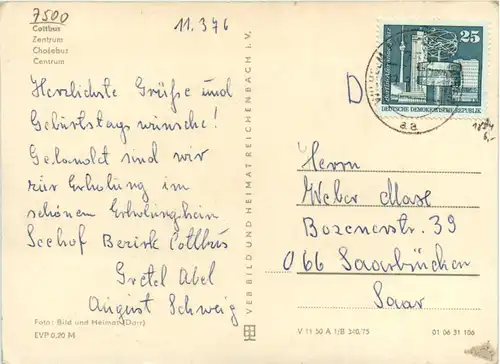 7500
Cottbus
Zentrum
Chośebuz
Centrum
11.3 76
Herzlichste Grüße und
Geburtstags wünsche!
Gelandet sind wir
zur Erholung im
schönen Erholungheim
Seehof Bezirk Cottbus
Gretel Abel
August Schweig
Foto: Bild und Heimat (Darr)
EVP 0,20 M
VEB BILD UND HEIMAT REICHENBACH I. V.
25
DEUTSCHE DEMOKRATISCHE REPUBLIK
aa
D
Herrn
Weber Max
Bozenerstr. 39
066 Saarbrücken
Saar
V 11 50 A 1/B 340/75
01 06 31 106